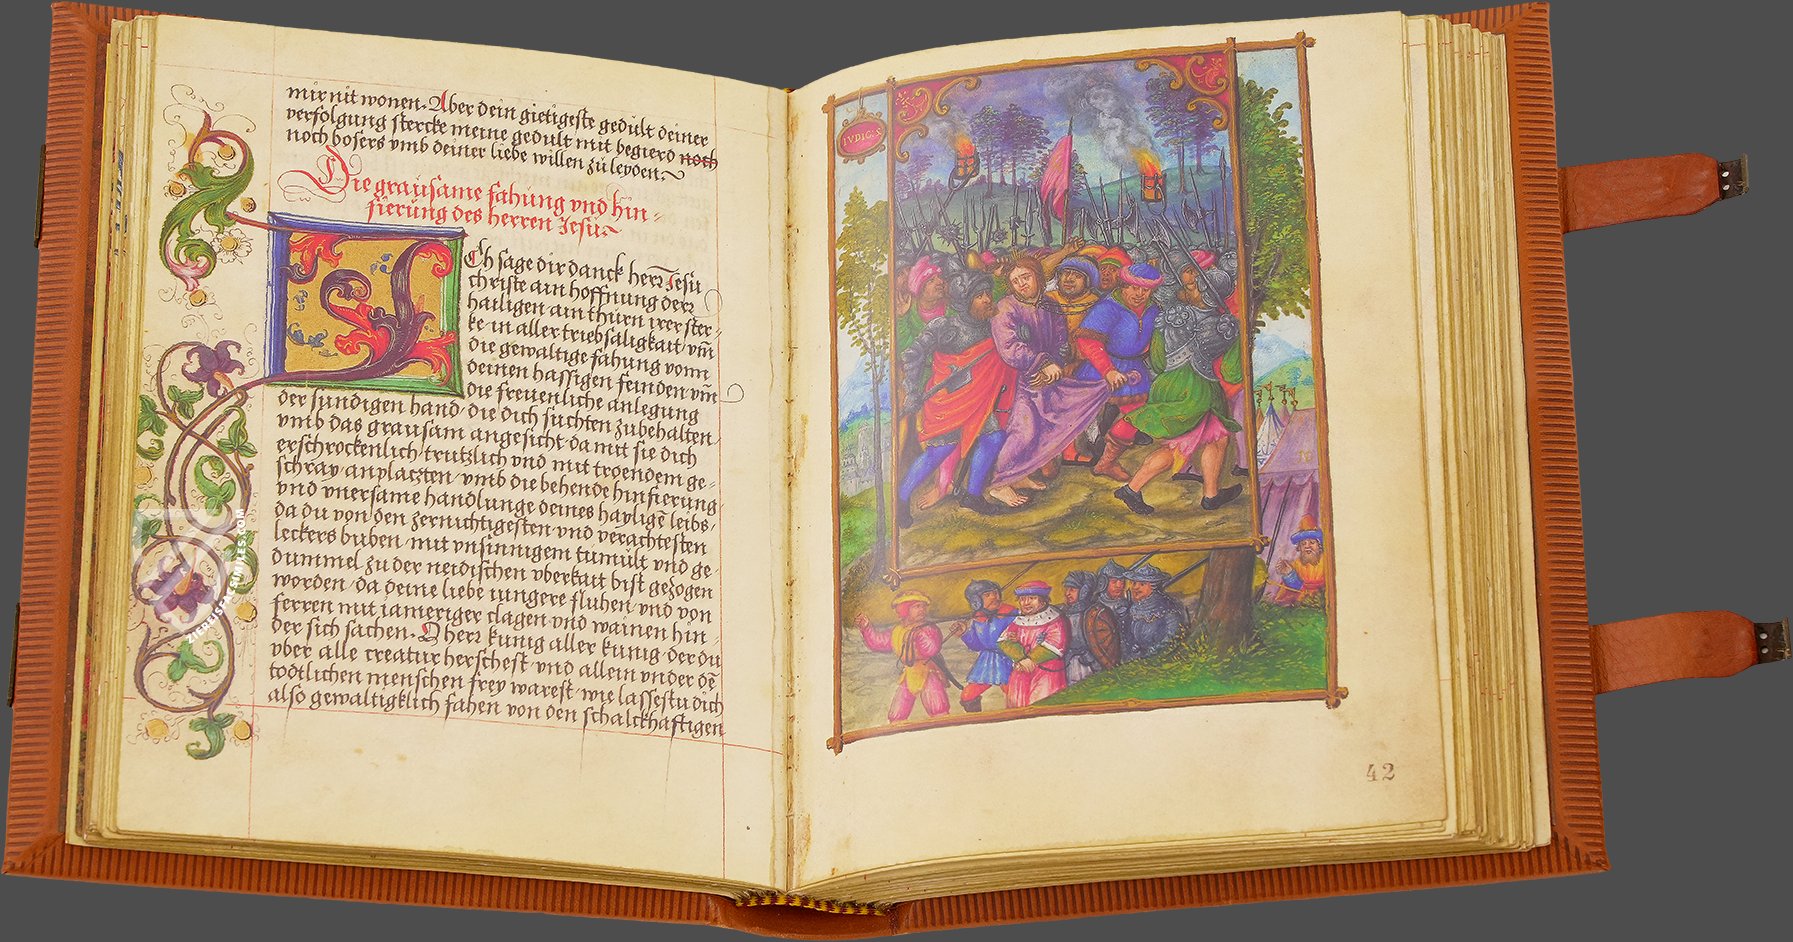 mir nit wonen. Aber dein gietigeste gedult deiner
verfolgung stercke meine gedult mit begierd noch
noch bosers vmb deiner liebe willen zu leyden.
Die grausame fahung vnd hin-
fierung des herren Jesu.
Ich sage dir danck herr Jesu
christe ain hoffnung derr
hailigen ain thurn irer ster-
ke in aller triebsaligkait vm̄
die gewaltige fahung vonn
deinen hassigen feinden vm̄
die freuenliche anlegung
der sundigen hand die dich suchten zubehalten
vmb das grausam angesicht da mit sie dich
erschrockenlich trutzlich vnd mit troendem ge-
schray anplatzten vmb die behende hinfierung
vnd vnersame handlunge deines hayligē leibs
da du von den zernichtigesten vnd verachtesten
leckers buben mit vnsinnigem tumult vnd ge-
dummel zu der neidischen vberkait bist gezogen
worden da deine liebe iungere fluhen vnd von
ferren mit iameriger clagen vnd wainen hin-
der sich sachen. O herr kunig aller kunig der du
vber alle creatur herschest vnd allein vnder dē
todtlichen menschen frey warest wie lassestu dich
also gewaltigklich fahen von den schalckhafftigen
IVDIC
42
ZIEREIS FACSIMILES.COM